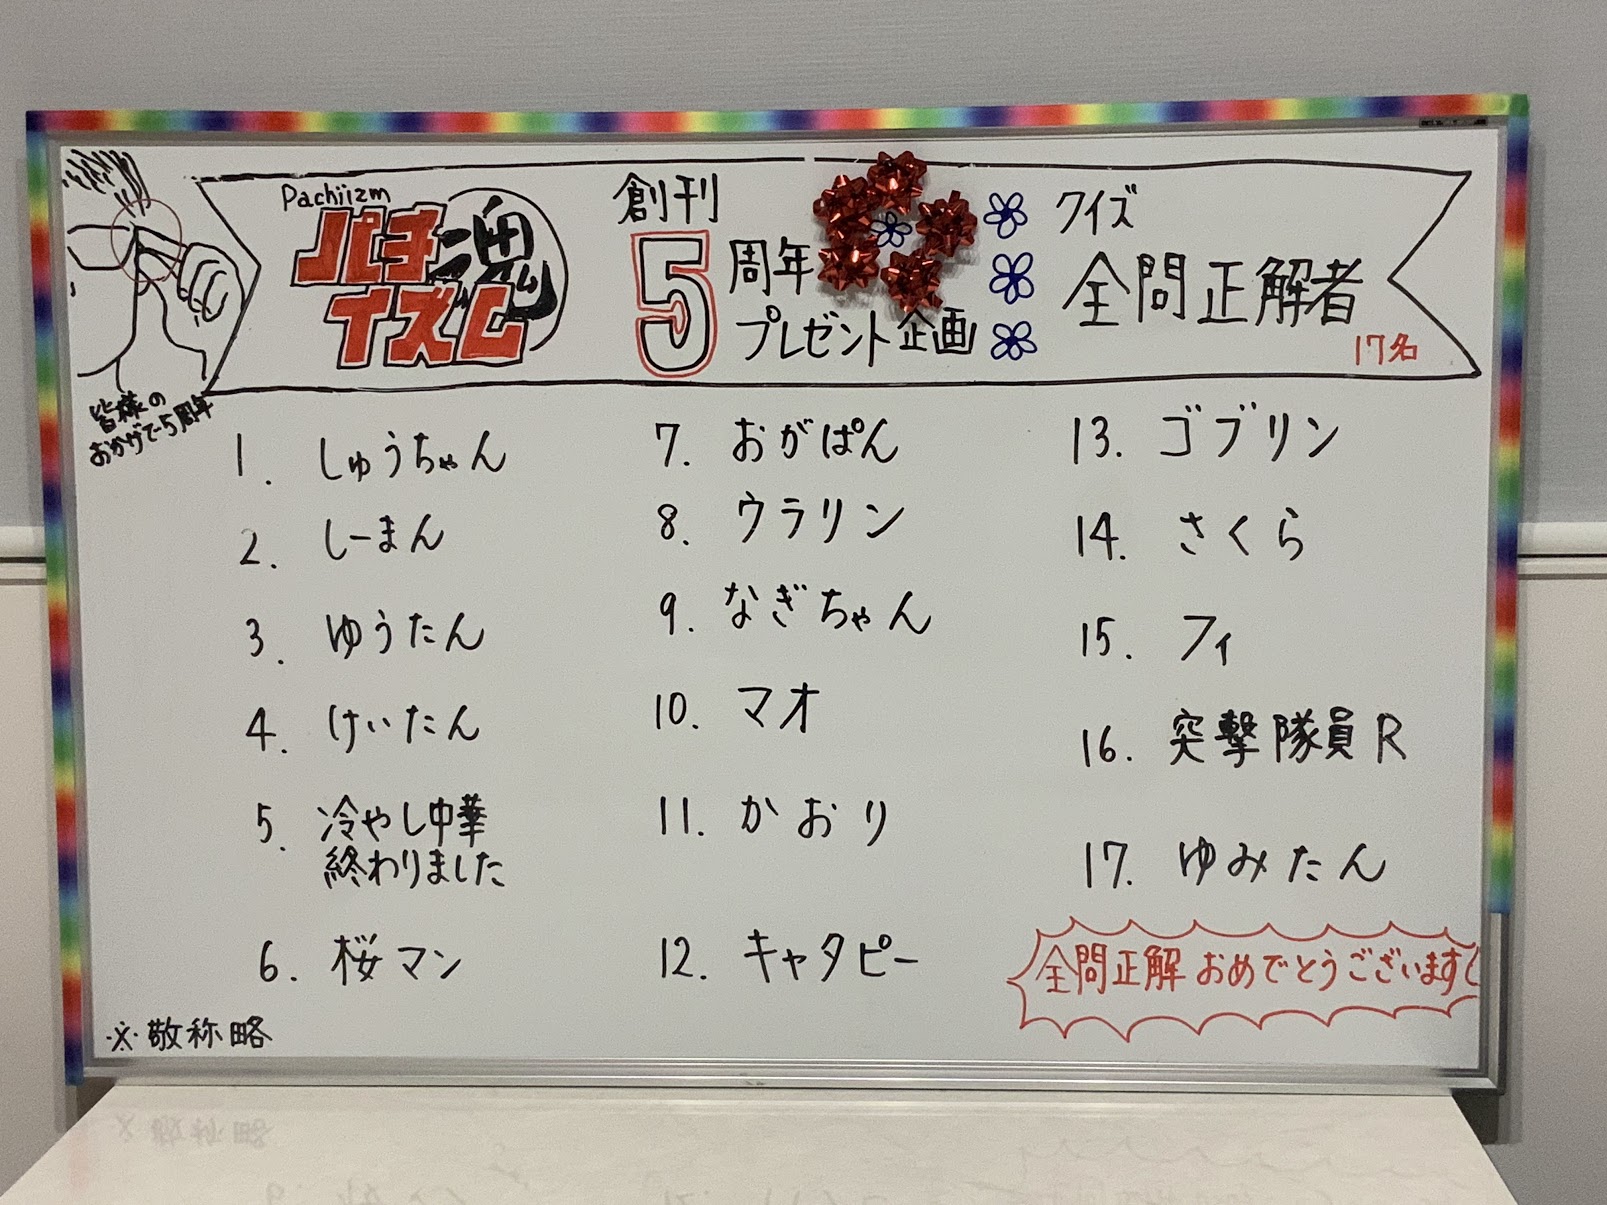 Pachiizm
パチ魂
イズム
創刊
5周年
プレゼント企画
クイズ
全問正解者
17名
皆様の
おかげで5周年
1. しゅうちゃん
2. しーまん
3. ゆうたん
4. けいたん
5. 冷やし中華
終わりました
6. 桜マン
7. おがぱん
8. ウラリン
9. なぎちゃん
10. マオ
11. かおり
12. キャタピー
13. ゴブリン
14. さくら
15. フィ
16. 突撃隊員R
17. ゆみたん
全問正解おめでとうございます
※敬称略